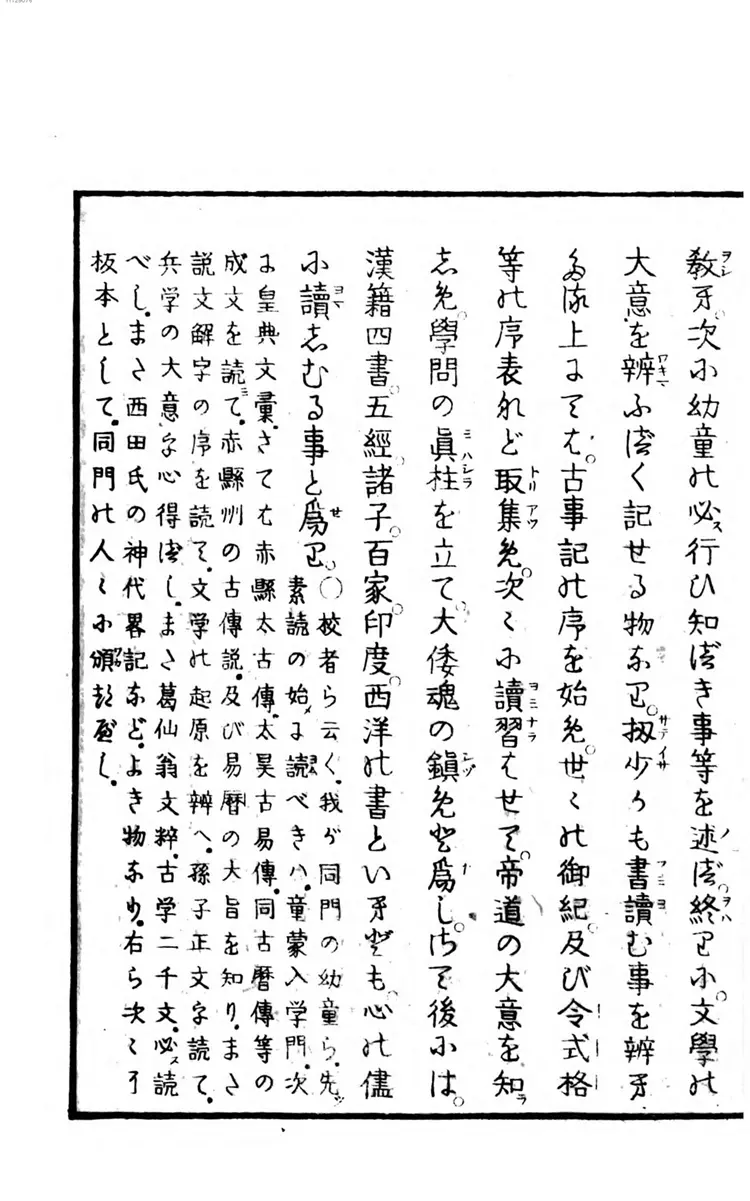 教へ。次に幼童の必ス行ひ知べき事等を述べ。終りに。文學の
大意を辨ふべく記せる物なり。扨少かも書讀む事を辨へ
たる上にては。古事記の序を始め。世々の御紀。及び令式格
等の序表など取集め。次々に讀習はせて。帝道の大意を知
しめ。學問の眞柱を立て。大倭魂の鎭めと爲し。さて後には。
漢籍四書。五經。諸子。百家。印度。西洋の書といへども。心の儘
に讀しむる事と爲り。〇校者ら云く。我が同門の幼童ら。先ッ
素読の始メに読べきハ。童蒙入学門。次
に皇典文彙。さては赤縣太古傳。太昊古易傳。同古暦傳等の
成文を読ミて。赤縣州の古傳説。及び易暦の大旨を知り。また
説文解字の序を読て。文学の起原を辨へ。孫子正文字読て。
兵学の大意字心得べし。また葛仙翁文粹。古学二千文。必ス読
べし。また西田氏の神代畧記など。よき物なり。右ら次々に
板本として。同門の人々に頒つべし。